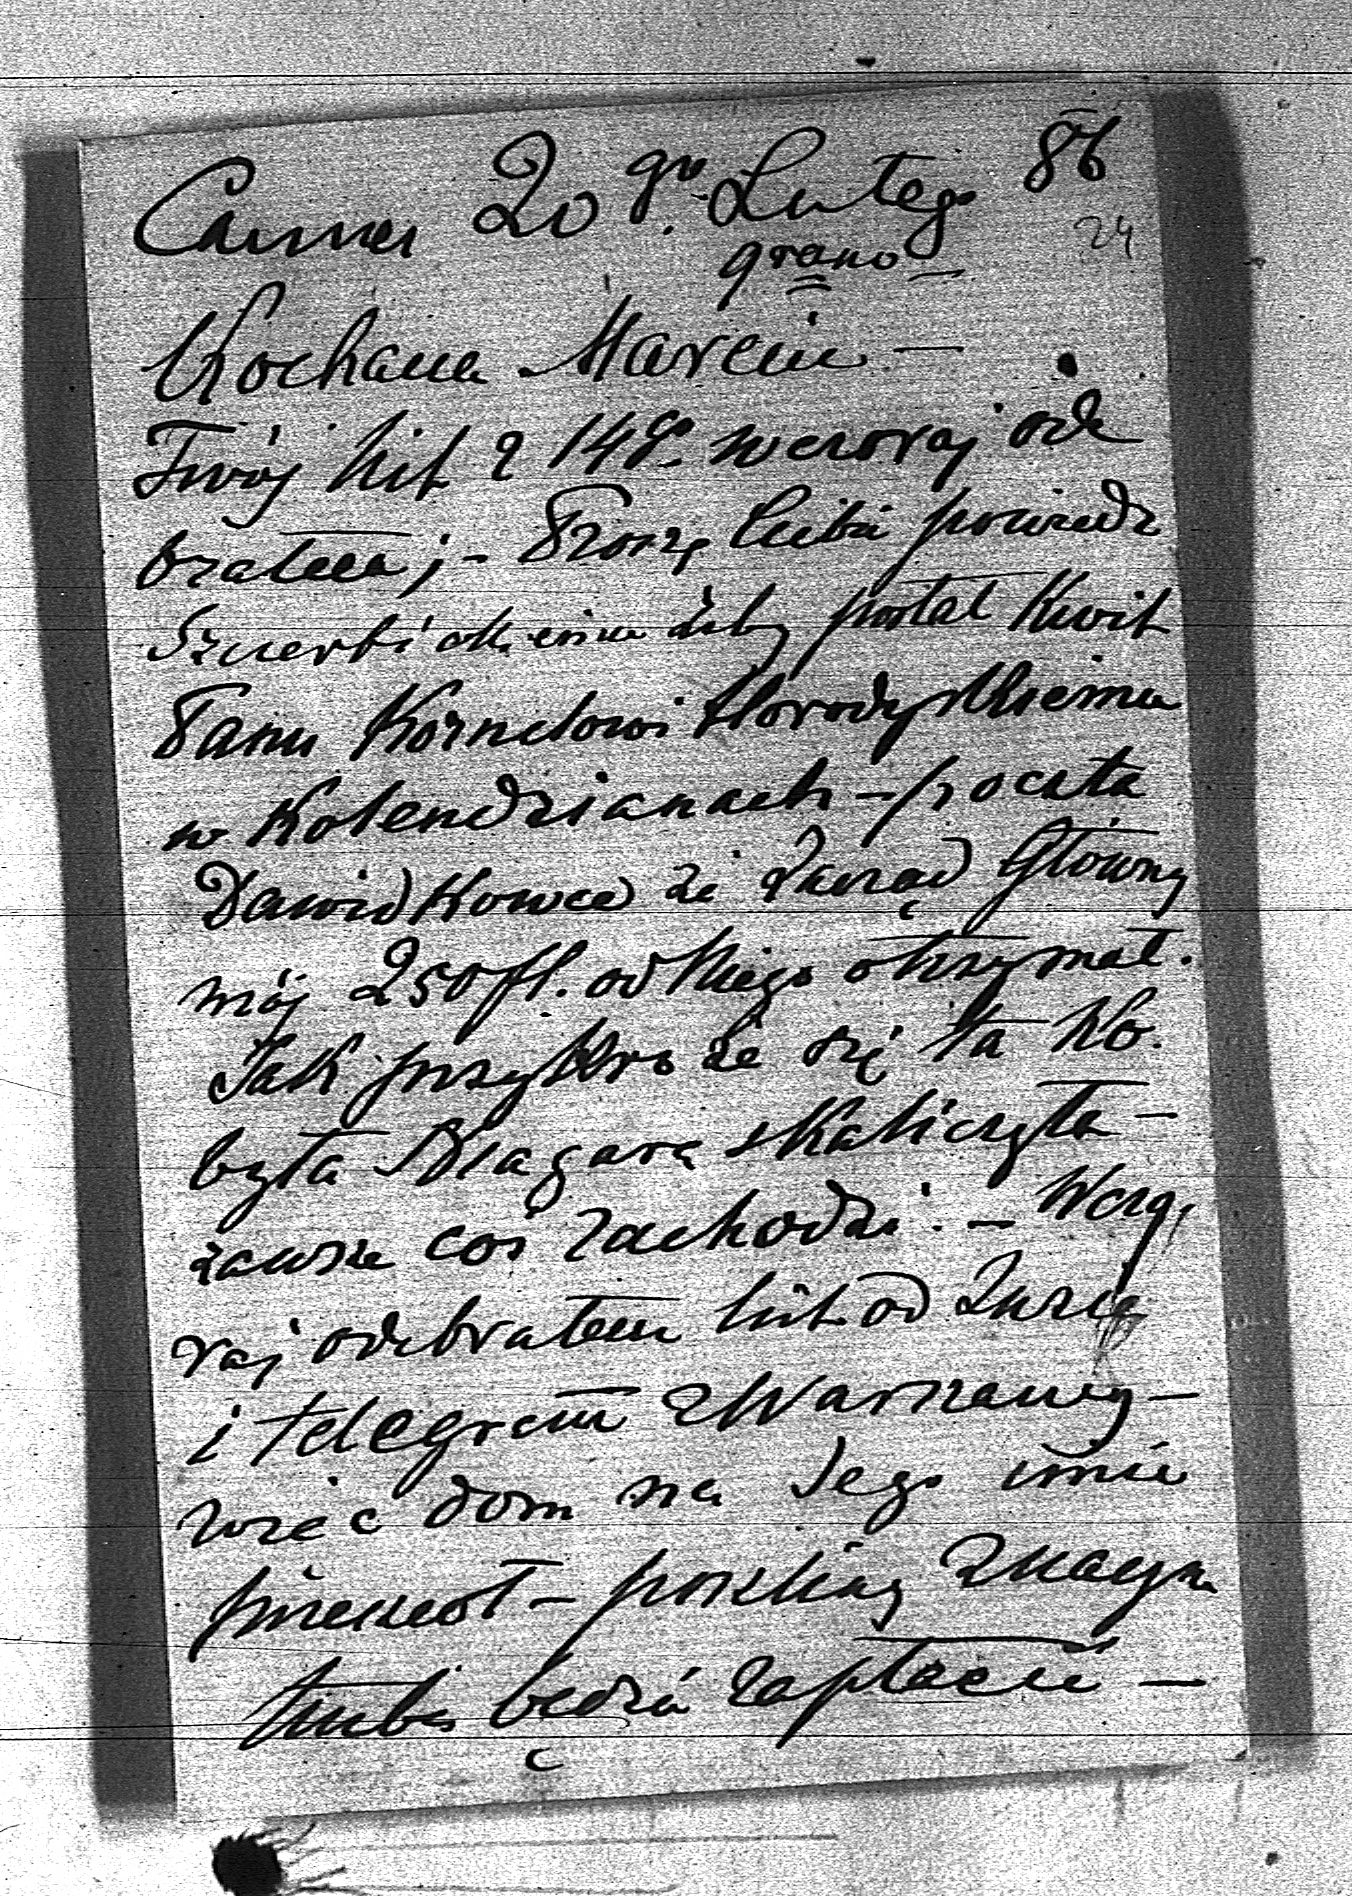 Cannes 20 go. Lutego 86
24
9 rano
Kochana Marciu –
Twój list z 14go. wczoraj ode
brałem ; – Proszę Ciebie powiedz
żeby posłał kwit
Panu Kornelowi Horodyskiemu
w Kolendzianach – poczta
Dawidkowce że Zarząd Główny
mój 250 fl. od niego otrzymał.
Jak przykro że się ta ko.
była Niagara skaliczyła –
zawsze coś zachodzi. – Wczo,
raj odebrałem list od Zuzię
i telegram z Warszawy –
więc dom na Jego imie
przeniósł – poszliny znaczne
trzeba będzie zapłacić –